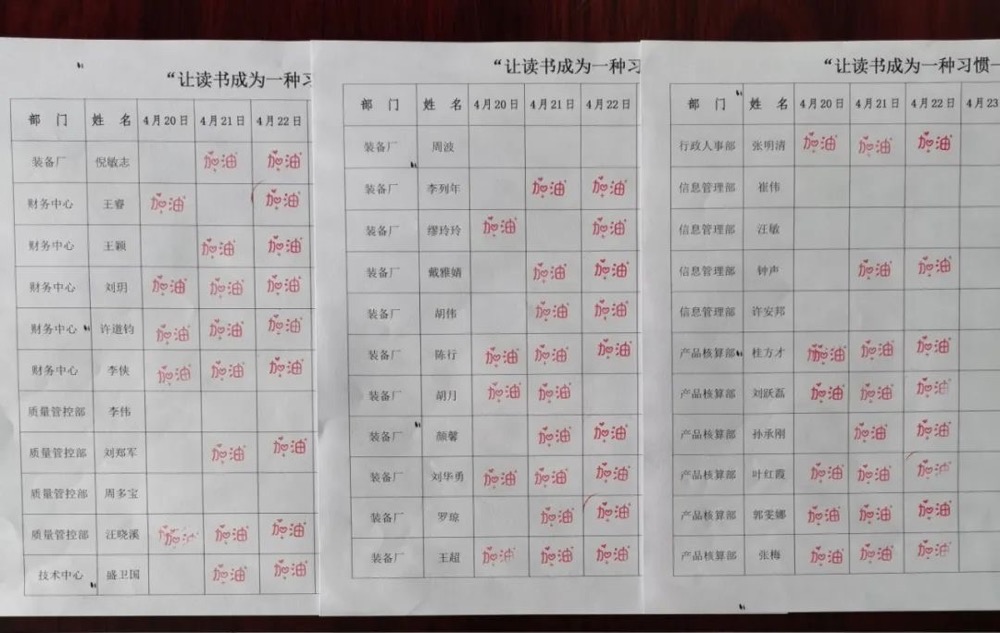 “让读书成为一种习
部 门 姓 名 4月20日 4月21日 4月22日
装备厂 倪敏志 加油 加油
财务中心 王睿 加油 加油
财务中心 王颖 加油 加油
财务中心 刘玥 加油 加油 加油
财务中心 许道钧 加油 加油 加油
财务中心 李侠 加油 加油 加油
质量管控部 李伟
质量管控部 刘郑军 加油 加油
质量管控部 周多宝
质量管控部 汪晓溪 加油 加油 加油
技术中心 盛卫国 加油 加油
“让读书成为一种习
部 门 姓 名 4月20日 4月21日 4月22日
装备厂 周波
装备厂 李列年 加油 加油
装备厂 缪玲玲 加油 加油
装备厂 戴雅婧 加油 加油
装备厂 胡伟 加油 加油
装备厂 陈行 加油 加油 加油
装备厂 胡月 加油 加油
装备厂 颜馨 加油 加油
装备厂 刘华勇 加油 加油 加油
装备厂 罗琼 加油 加油
装备厂 王超 加油 加油 加油
“让读书成为一种习惯—
部 门 姓 名 4月20日 4月21日 4月22日 4月23
行政人事部 张明清 加油 加油 加油
信息管理部 崔伟
信息管理部 汪敏
信息管理部 钟声 加油 加油
信息管理部 许安邦
产品核算部 桂方才 加油 加油 加油
产品核算部 刘跃磊 加油 加油 加油
产品核算部 孙承刚 加油 加油
产品核算部 叶红霞 加油 加油 加油
产品核算部 郭雯娜 加油 加油 加油
产品核算部 张梅 加油 加油 加油